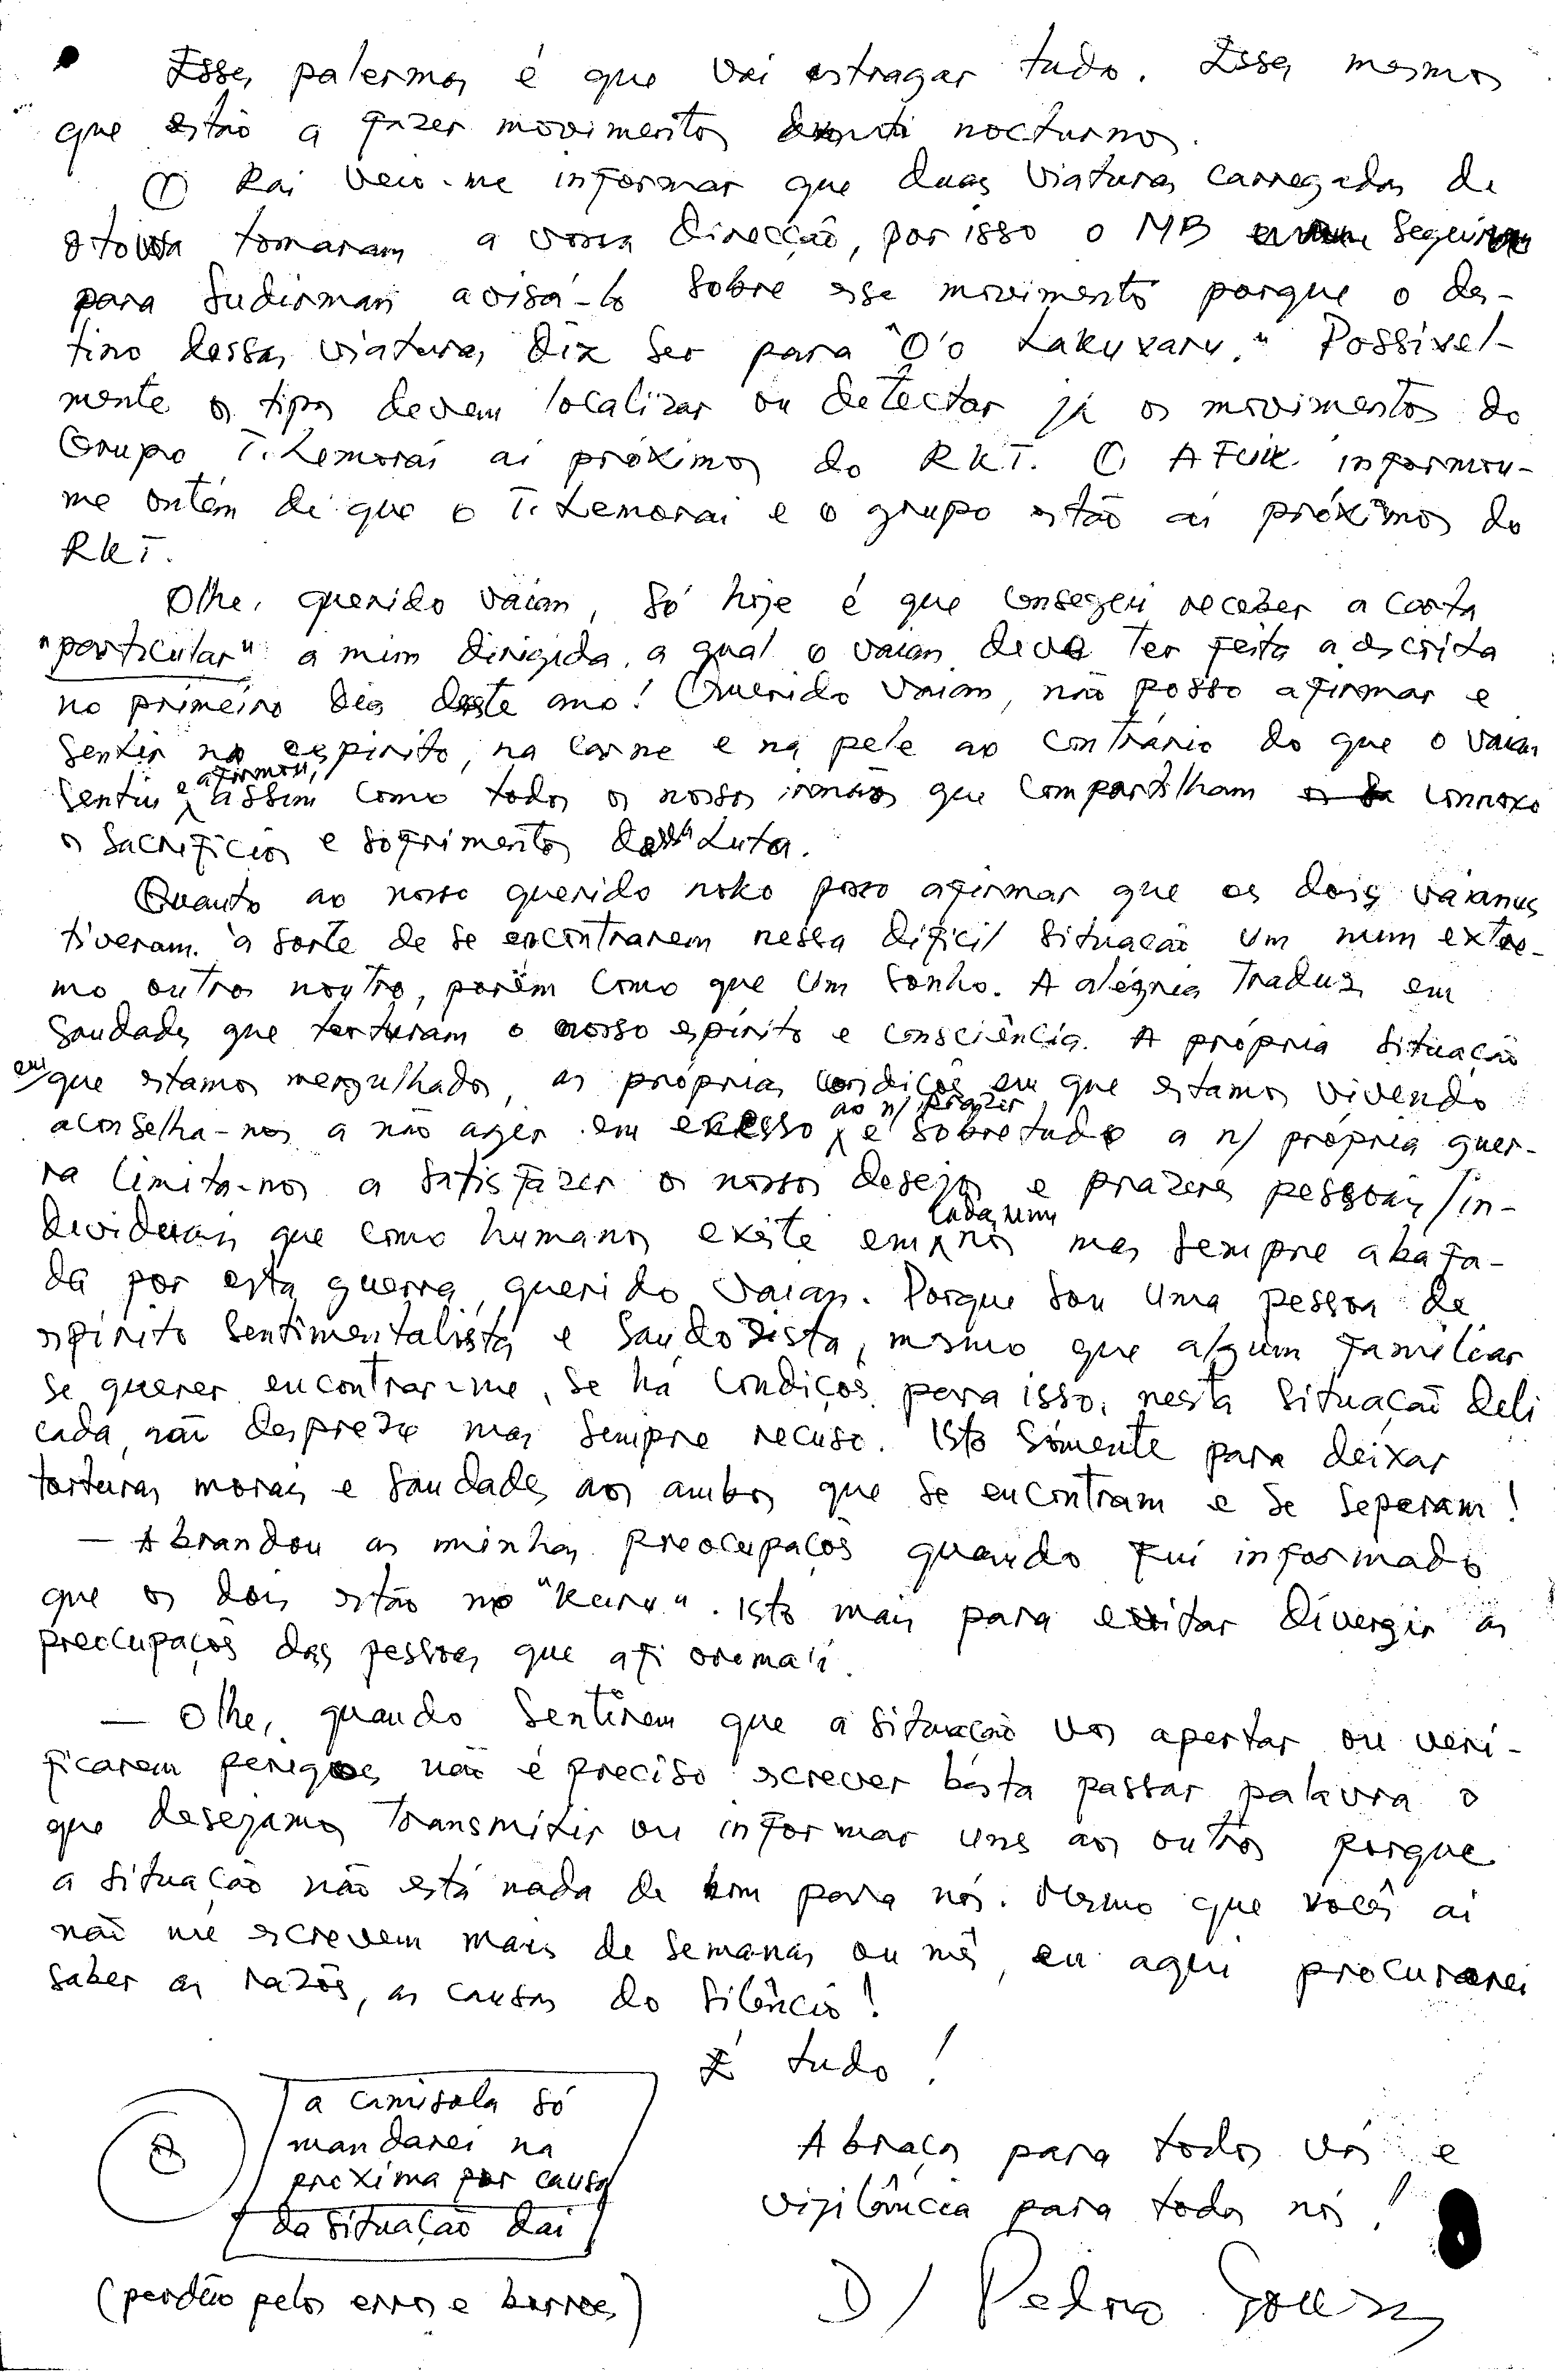 Esses palermas é que vai estragar tudo. Esses mesmos
que estão a fazer movimentos nocturnos.
O Rai veio-me informar que duas viaturas carregadas de
tomaram a vossa direcção, por isso o MB seguiu
para Sudirman avisá-lo sobre esse movimento porque o des-
tino dessas viaturas diz ser para "O'o Lakuvaru." Possivel-
mente os tipos devem localizar ou detectar já os movimentos do
Grupo T. Lemorai aí próximos do RKT. O informou-
me ontem de que o T. Lemorai e o grupo estão aí próximos do
RKT.
Olhe, querido vaian, só hoje é que consegui receber a carta
"particular" a mim dirigida, a qual o vaian deve ter feito a escrita
no primeiro dia deste ano! Querido vaian, não posso afirmar e
sentir no espírito, na carne e na pele ao contrário do que o vaian
sentiu e afirmou, assim como todos os nossos irmãos que compartilham connosco
os sacrifícios e sofrimentos desta Luta.
Quanto ao nosso querido noko posso afirmar que os dois vaianus
tiveram a sorte de se encontrarem nessa difícil situação um num extre-
mo outro noutro, porém como que um sonho. A alegria traduz em
saudades que torturam o nosso espírito e consciência. A própria situação
em que estamos mergulhados, as próprias condições em que estamos vivendo
aconselha-nos a não agir em excesso ao n/ prazer e sobretudo a n/ própria guer-
ra limita-nos a satisfazer os nossos desejos e prazeres pessoais/in-
dividuais que como humanos existe em cada um nós mas sempre abafa-
da por esta guerra, querido vaian. Porque sou uma pessoa de
espírito sentimentalista e saudosista, mesmo que algum familiar
se querer encontrar-me, se há condições para isso, nesta situação deli
cada, não desprezo mas sempre recuso. Isto sómente para deixar
torturas morais e saudades aos ambos que se encontram e se separam!
— Abrandou as minhas preocupações quando fui informado
que os dois estão no "Keiru". Isto mais para evitar divergir as
preocupações das pessoas que ati oremaii.
— Olhe, quando sentirem que a situação vos apertar ou veri-
ficarem perigos não é preciso escrever basta passar palavra o
que desejamos transmitir ou informar uns aos outros porque
a situação não está nada de bom para nós. Mesmo que vocês aí
não me escrevem mais de semanas ou mês, eu aqui procurarei
saber as razões, as causas do silêncio!
É tudo!
a camisola só
mandarei na
proxima por causa
da situação daí
(perdão pelos erros e borrões)
Abraços para todos vós e
vigilância para todos nós!
D/ Pedro